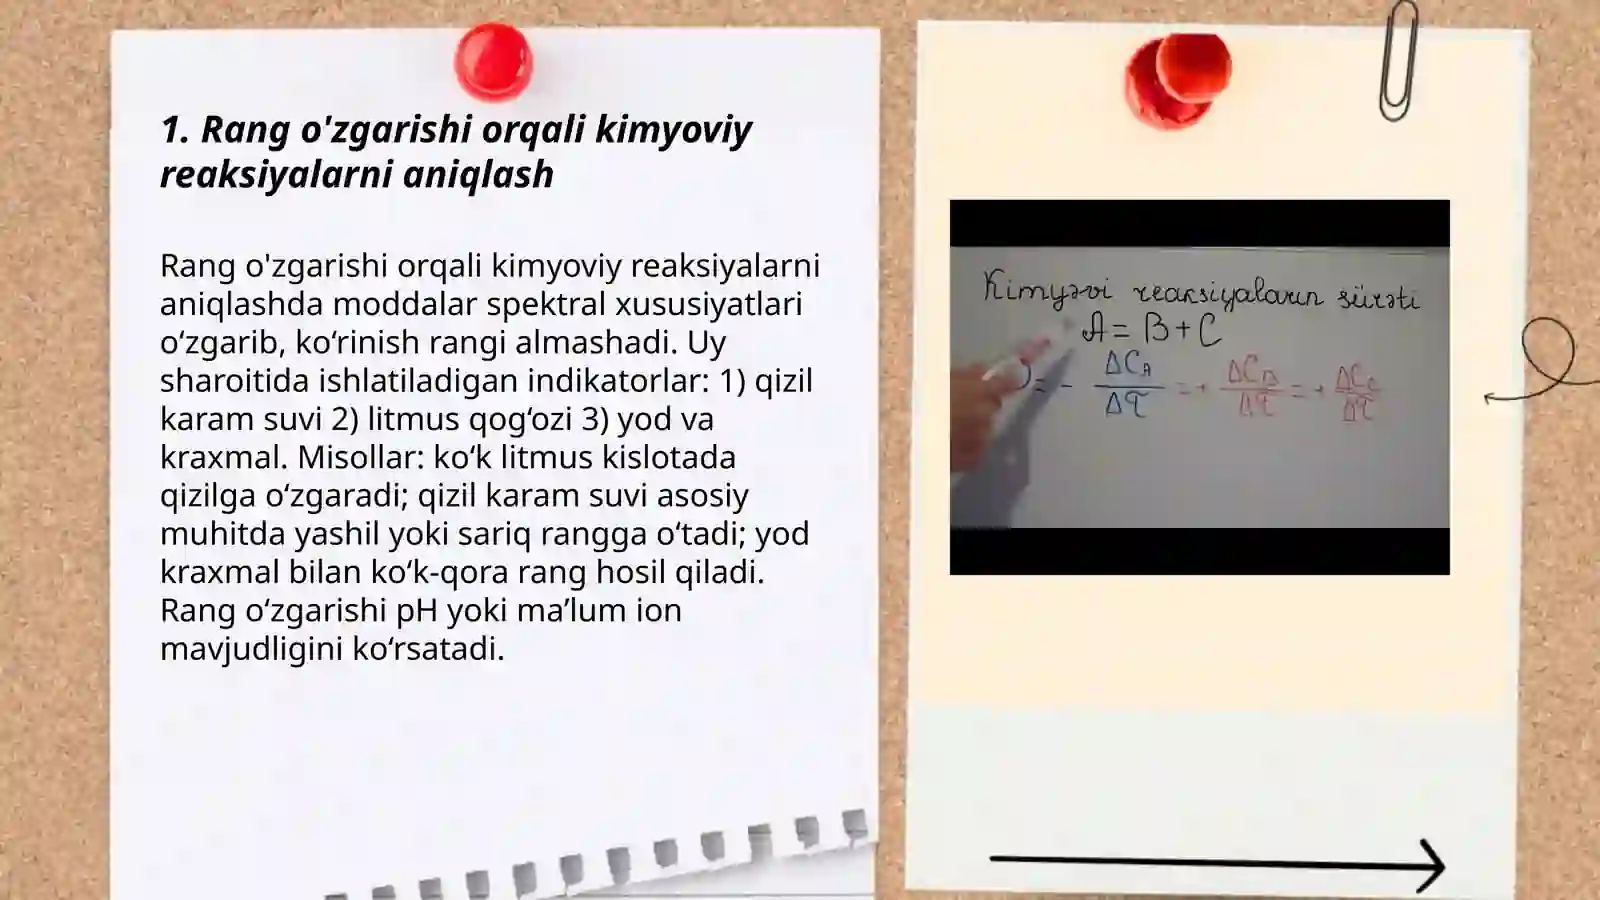 1. Rang o'zgarishi orqali kimyoviy
reaksiyalarni aniqlash
Rang o'zgarishi orqali kimyoviy reaksiyalarni
aniqlashda moddalar spektral xususiyatlari
o‘zgarib, ko‘rinish rangi almashadi. Uy
sharoitida ishlatiladigan indikatorlar: 1) qizil
karam suvi 2) litmus qog‘ozi 3) yod va
kraxmal. Misollar: ko‘k litmus kislotada
qizilga o‘zgaradi; qizil karam suvi asosiy
muhitda yashil yoki sariq rangga o‘tadi; yod
kraxmal bilan ko‘k-qora rang hosil qiladi.
Rang o‘zgarishi pH yoki ma’lum ion
mavjudligini ko‘rsatadi.
Kimyəvi reaksiyaların sürəti
A = B + C
= - ΔC_A/Δτ = + ΔC_B/Δτ = + ΔC_C/Δτ